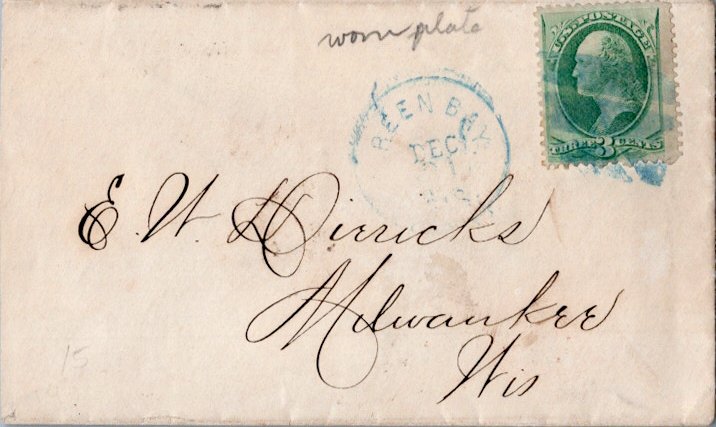 worn plate
U.S. POSTAGE
THREE 3 CENTS
REEN BAY
DEC
E. W. Dirricks
Milwaukee
Wis
15